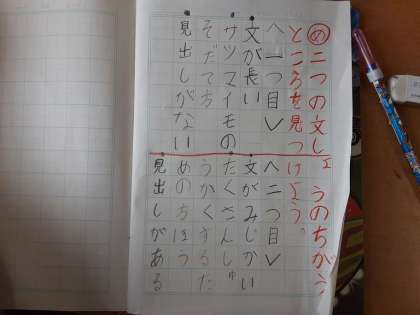 め 二つの文しょうのちがう
ところを見つけよう。
〈一つ目〉
・文が長い
・サツマイモの
そだて方
・見出しがない
〈二つ目〉
・文がみじかい
・たくさんしゅ
うかくするた
めのちほう
・見出しがある